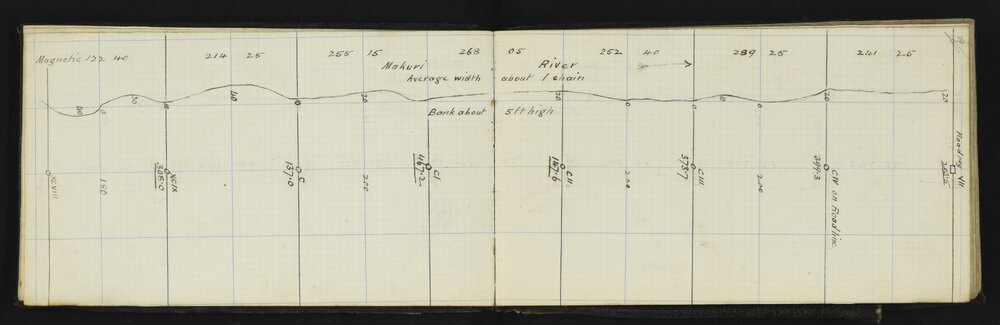 Magnetic 122 40 214 25 255 15 268 05 252 40 289 25 241 25
Makuri River
Average width about 1 chain
Bank about 5 ft high
40 0 30 10 40 10 20 20 0 0 10 0 20 20
XCVIII
180
XCIX
308.0
205
C
137.0
200
CI
467.2
CII
147.6
CIII
373.7
200
CIV on Roadline
399.3
Road peg VII